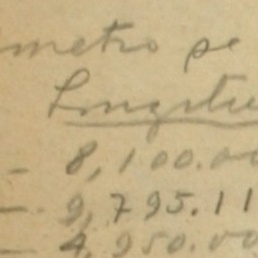 metro se
Longitu
- 8,100.00
- 9,795.11
- 4,950.00